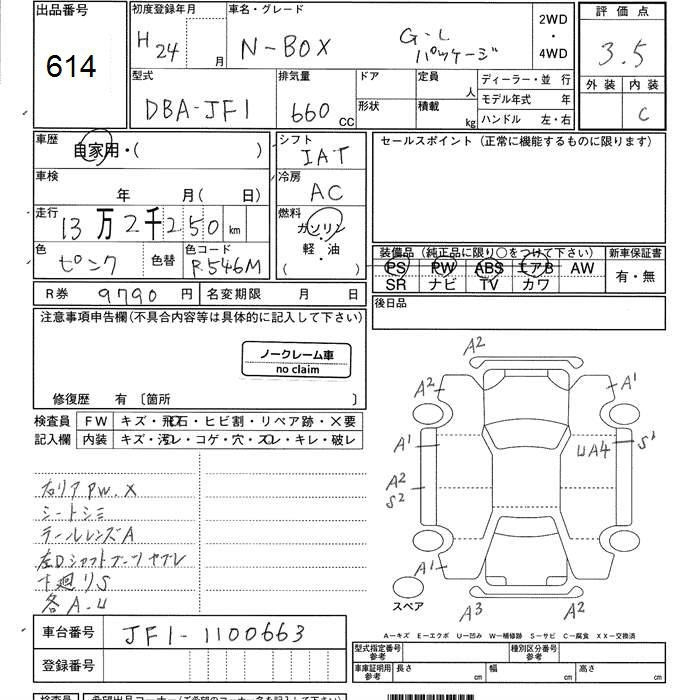 出品番号
614
初度登録年月
H 24 月
車名・グレード
N-BOX G-L パッケージ
2WD
・
4WD
評価点
3.5
外装 内装
C
型式
DBA-JF1
排気量
660 CC
ドア
形状
定員 人
積載 kg
ディーラー・並 行
モデル年式 年
ハンドル 左・右
車歴
自家用・( )
シフト
IAT
セールスポイント (正常に機能するものに限ります)
車検
年 月( 日)
冷房
AC
走行
13万2千250 km
燃料
ガソリン
・
軽・油
( )
色
ピンク
色替
色コード
R546M
装備品(純正品に限り○をつけて下さい) 新車保証書
PS PW ABS エアB AW
SR ナビ TV カワ
有・無
R券 9790 円
名変期限 月 日
後日品
注意事項申告欄(不具合内容等は具体的に記入して下さい)
ノークレーム車
no claim
修復歴 有〔箇所 〕
検査員 FW キズ・飛石・ヒビ割・リペア跡・×要
記入欄 内装 キズ・汚レ・コゲ・穴・スレ・キレ・破レ
右リア PW.X
シートシミ
テールレンズA
左Dシャフトブーツヤブレ
下廻りS
各A.U
A2
A2 A1
A1 UA4 S1
A2
S2
A1
スペア
A3 A2
車台番号 JF1-1100663
登録番号
A－キズ E－エクボ U－凹み W－補修跡 S－サビ C－腐食 XX－交換済
型式指定番号
参考
種別区分番号
参考
車庫証明用
参考
長さ cm 幅 cm 高さ cm
検査員 希望出品コーナー(ご希望のコーナー名を記入下さい)